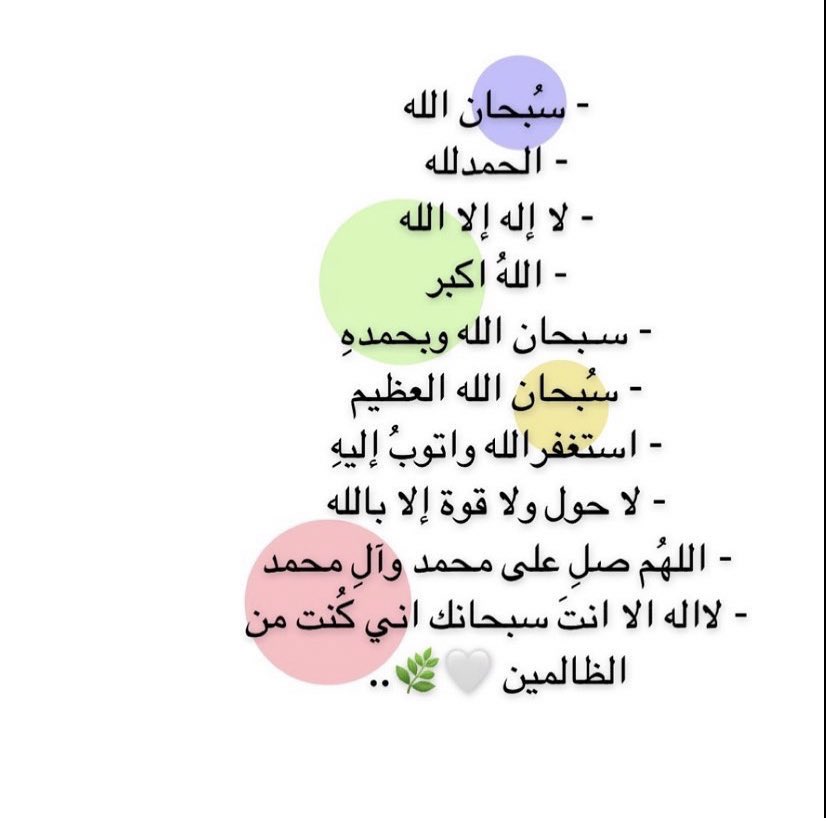 - سُبحان الله
- الحمدلله
- لا إله إلا الله
- اللهُ اكبر
- سبحان الله وبحمدهِ
- سُبحان الله العظيم
- استغفرالله واتوبُ إليهِ
- لا حول ولا قوة إلا بالله
- اللهُم صلِ على محمد وآلِ محمد
- لااله الا انتَ سبحانك اني كُنت من
الظالمين 🤍🌿..